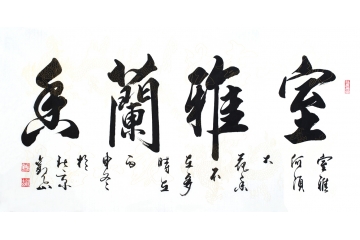 室雅蘭香
室雅
何須
大
花香
不
在多
時在
丙
申冬
於
北京